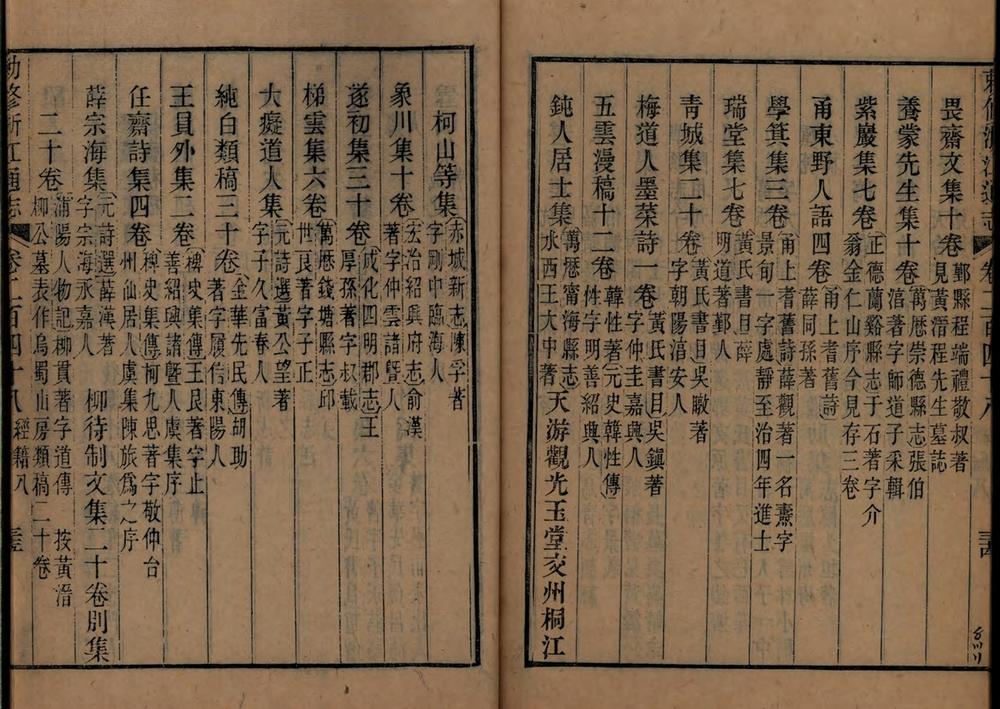 畏齋文集十卷 鄞縣程端禮敬叔著
見黃溍程先生墓誌
養蒙先生集十卷 萬曆崇德縣志張伯
淯著字師道子釆輯
紫巖集七卷 正德蘭谿縣志于石著字介
翁金仁山序今見存三卷
甬東野人語四卷 甬上耆舊詩
薛同孫著
學箕三卷 甬上耆舊詩薛觀著一名燾字
景旬一字處靜至治四年進士
瑞堂集七卷 黃氏書目薛
明道著鄞人
青城集二十卷 黃氏書目吳暾著
字朝陽湻安人
梅道人墨菜詩一卷 黃氏書目吳鎮著
字仲圭嘉興人
五雲漫稿十二卷 韓性著元史韓性傳
性字明善紹興人
鈍人居士集 萬曆寗海縣志
水西王大中著 天游觀光玉堂交州桐江
柯山等集 赤城新志陳字著
字剛中臨海人
象川集十卷 宏治紹興府志俞漢
著字仲雲諸暨人
遂初集三十卷 成化四明郡志王
厚孫著字叔載
梯雲集六卷 萬曆錢塘縣志邱
世良著字子正
大癡道人集 元詩選黃公望著
字子久富春人
純白類稿三十卷 金華先民傳胡助
著字履信東陽人
王員外集二卷 稗史集傳王艮著字止
善紹興諸暨人虞集序
任齋詩集四卷 稗史集傳柯九思著字敬仲台
州仙居人虞集陳旅爲之序
薛宗海集 元詩選薛漢著
字宗海永嘉人 柳待制文集二十卷別集
二十卷 浦陽人物記柳貫著字道傳 按黃溍
柳公墓表作烏蜀山房類稿二十卷
敕修浙江通志 卷二百四十八 經籍八